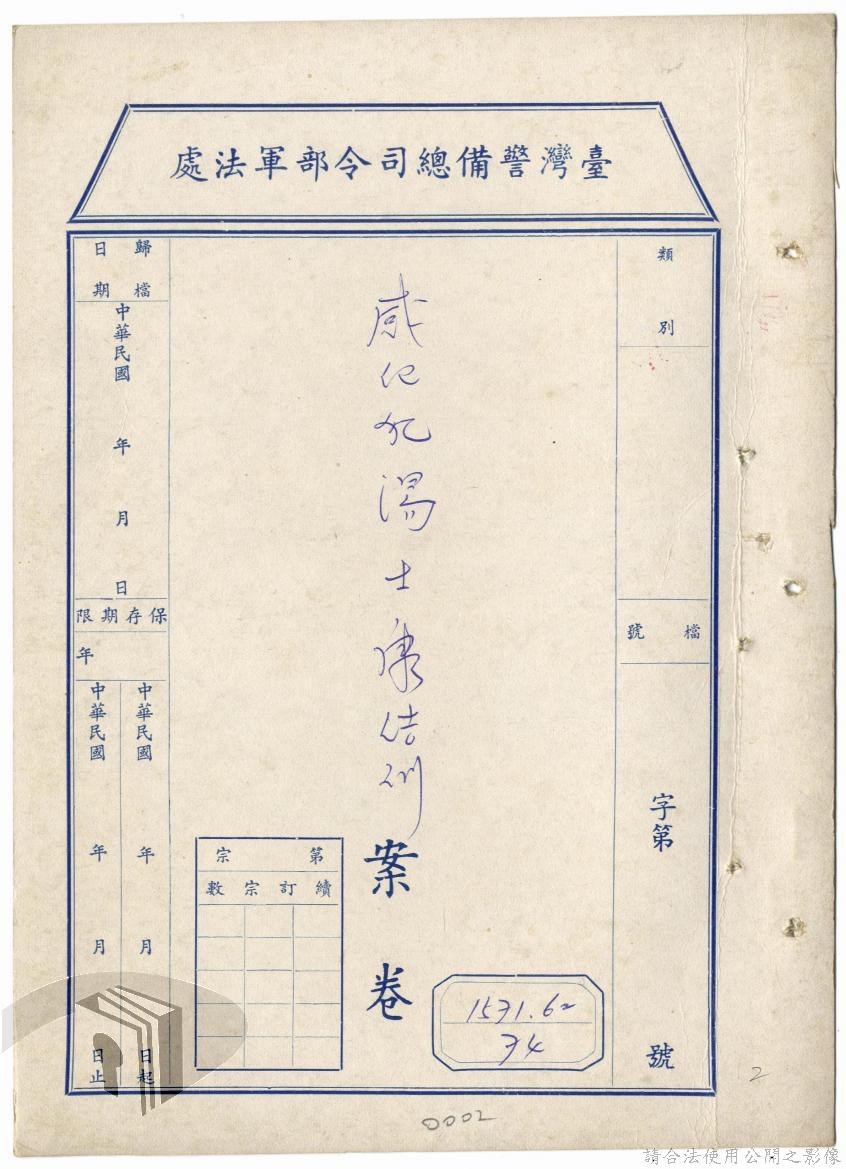 臺灣警備總司令部軍法處
類別
檔號
字第
號
感化犯湯士康結訓
案卷
1571.62
34
第宗
續訂宗數
歸檔日期
中華民國
年
月
日
保存期限
年
中華民國
年
月
日起
中華民國
年
月
日止
2
0002
請合法使用公開之影像